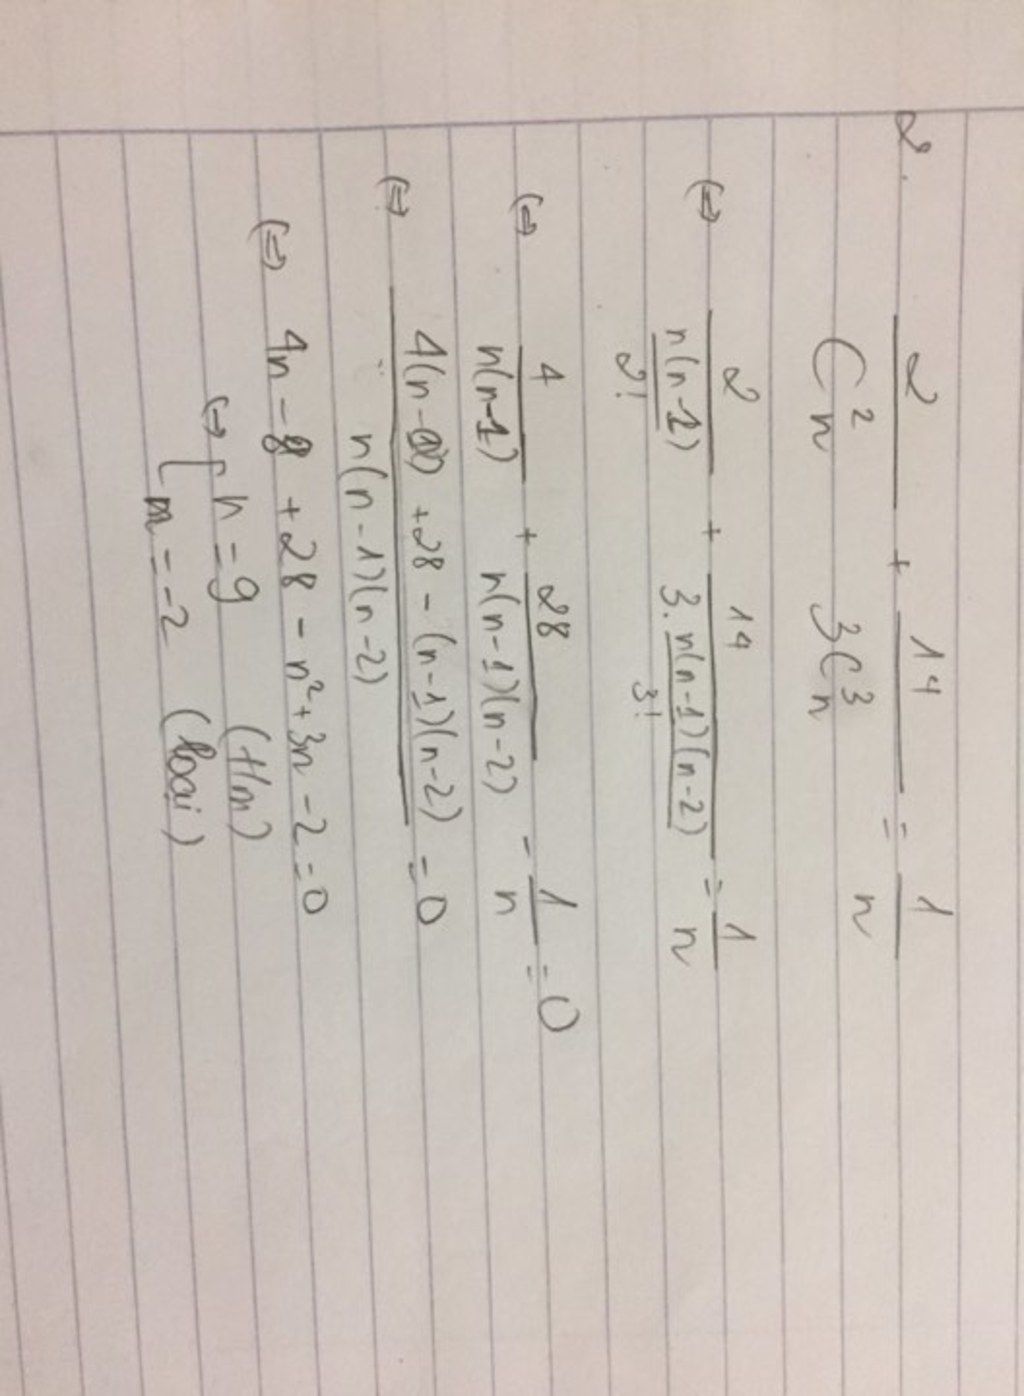 2. 2/C²ₙ + 14/3C³ₙ = 1/n
(=) 2/(n(n-1)/2!) + 14/(3.n(n-1)(n-2)/3!) = 1/n
(=) 4/n(n-1) + 28/n(n-1)(n-2) - 1/n = 0
(=) (4(n-2) + 28 - (n-1)(n-2))/(n(n-1)(n-2)) = 0
(=) 4n - 8 + 28 - n² + 3n - 2 = 0
(=) [ n = 9 (t/m)
n = -2 (loại)